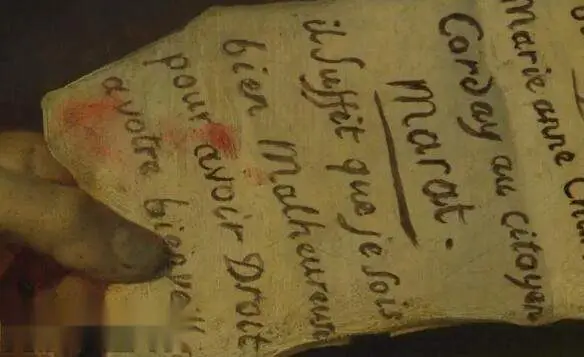 Marie anne Cha
Corday au citoyen
marat.
il Suffit que je sois
bien Malheureuse
pour avoir Droit
a votre bienveil